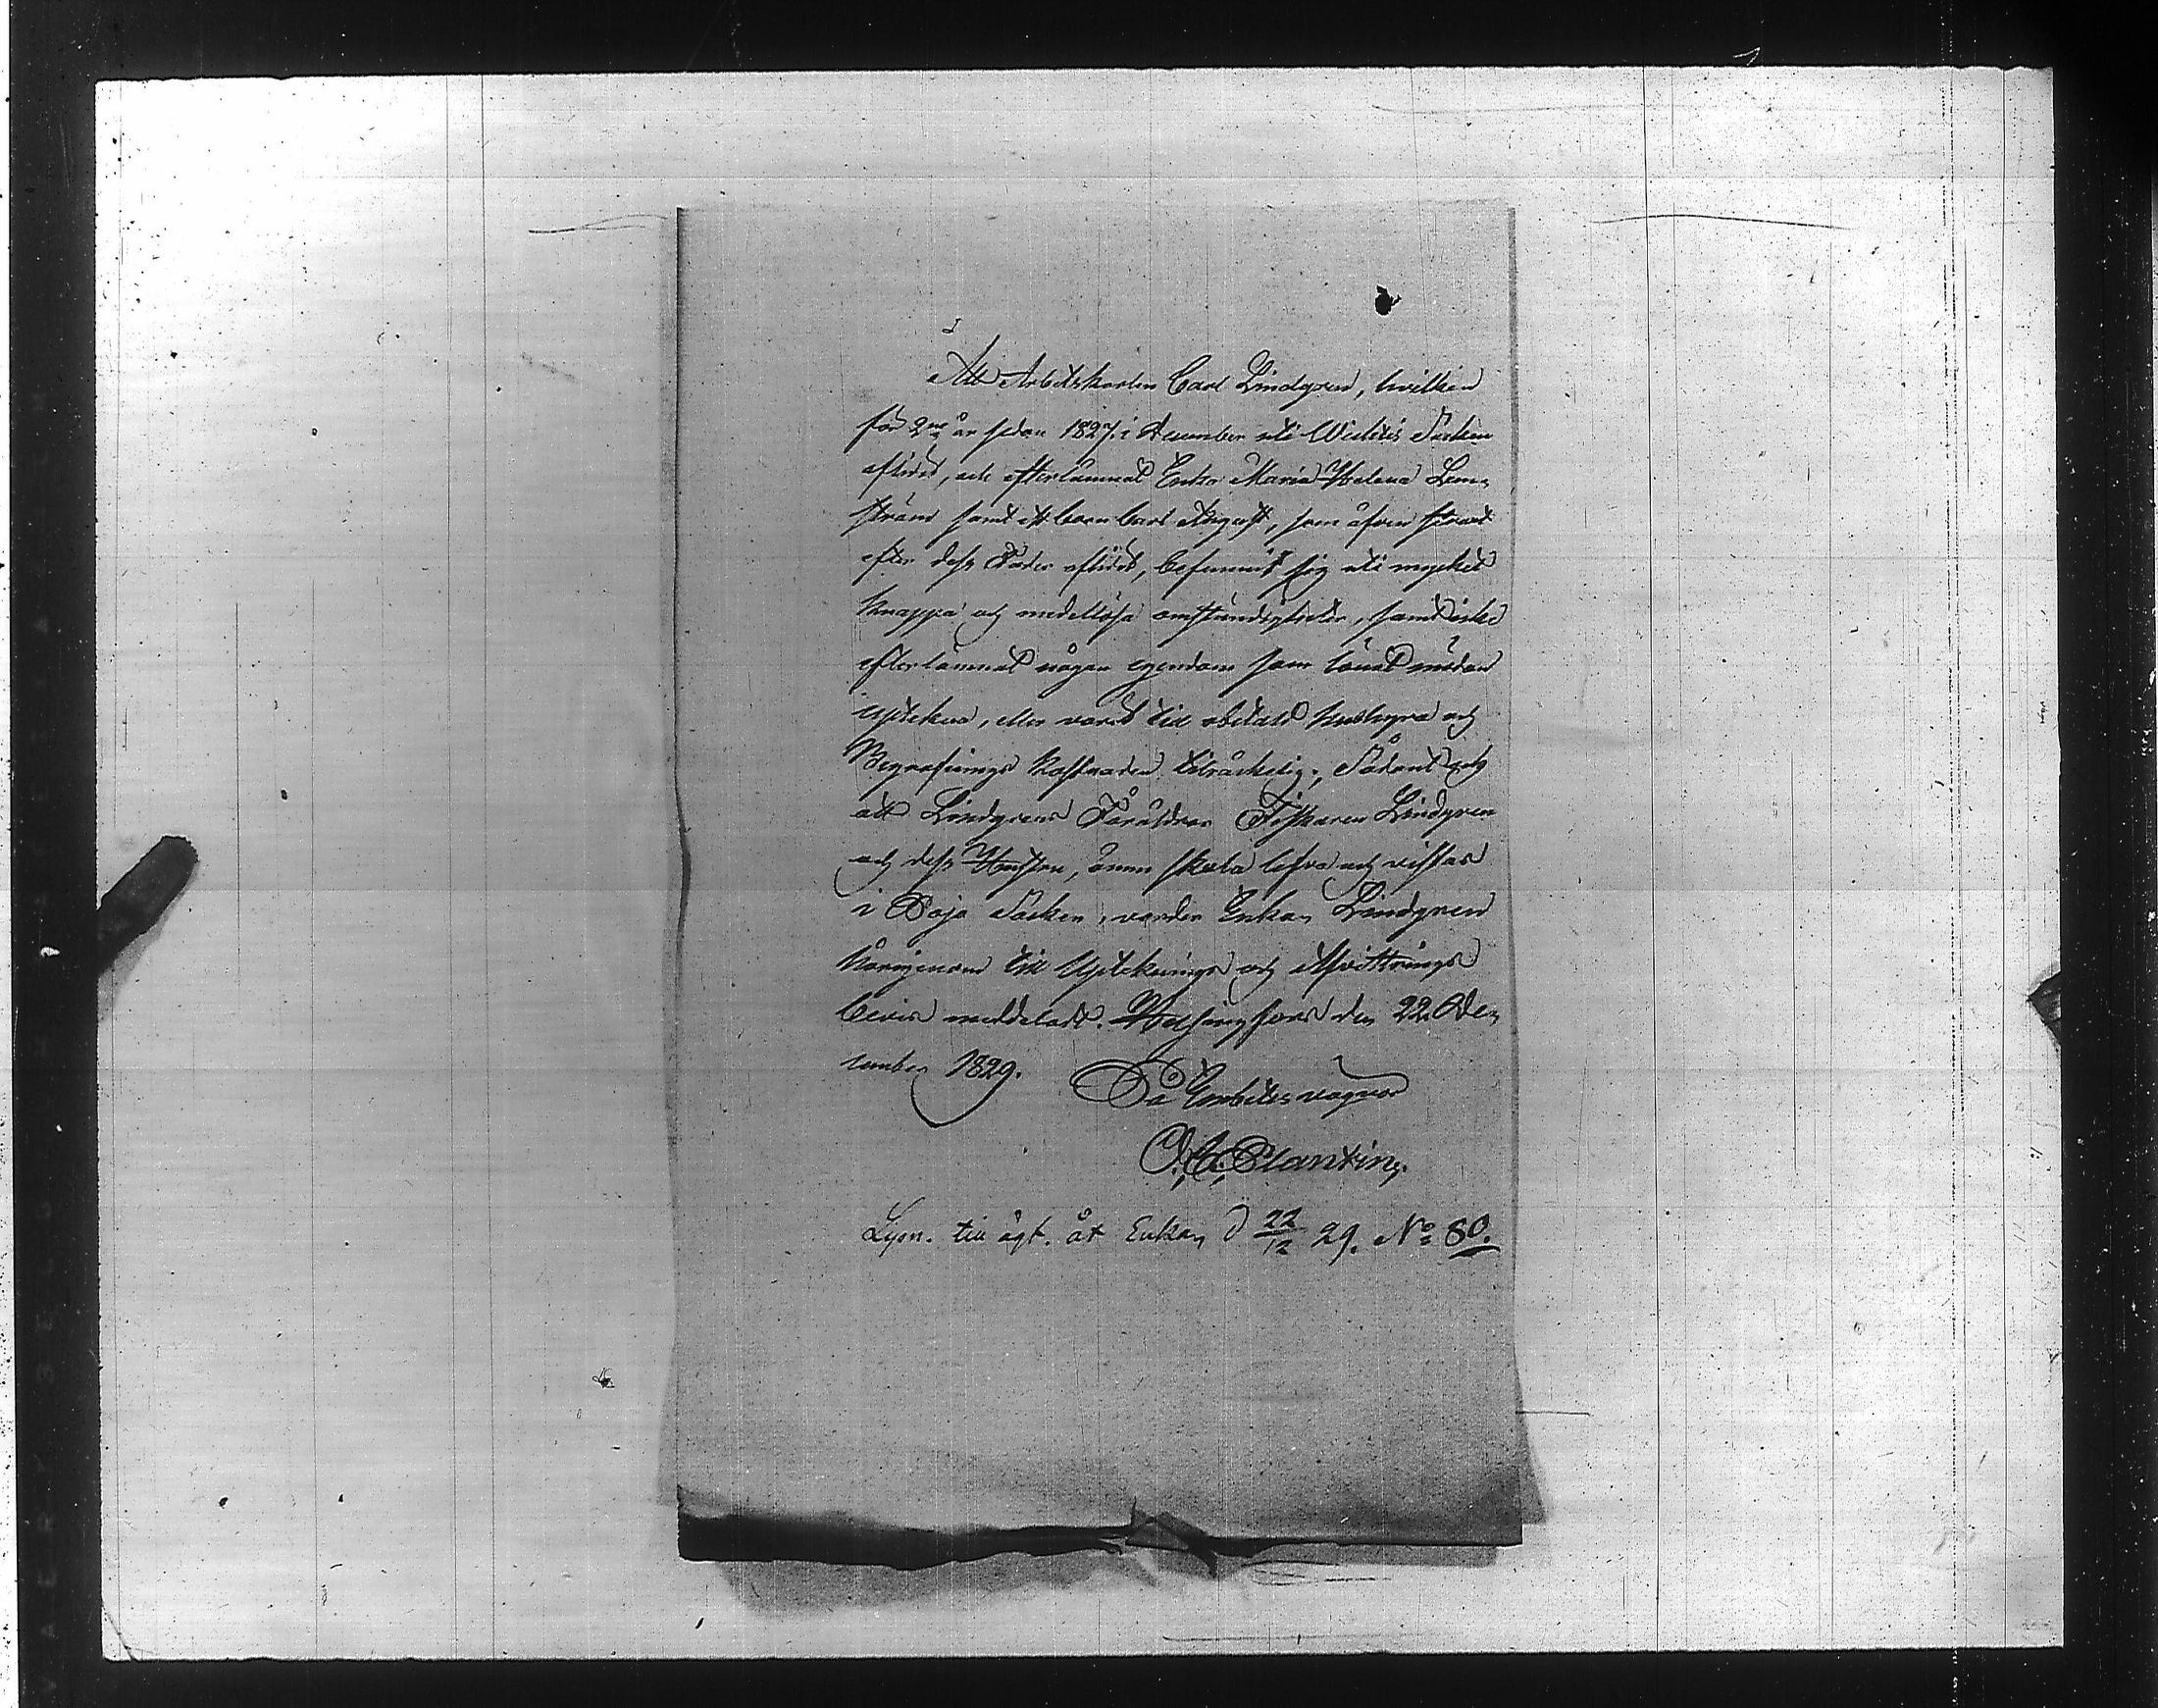 Att Arbetskarlen Carl Lindgren, hvilken
för 2ne år sedan 1827. i December uti Wichtis Socken
aflidit, och efterlämnat Enka Maria Helena Lem-
ström samt ett barn Carl August, som äfven
efter dess Fader aflidit, befunnit sig uti mycket
knappa och medellösa omständigheter, samt icke
efterlämnat någon egendom som lönat mödan
uptekna, eller varit till obetald hushyra och
Begrafnings kostnaden tilräckelig; Sådant och
att Lindgrens Föräldrar Fiskaren Lindgren
och dess Hustru, ännu skola lefva och vistas
i Pojo Socken, varder Enkan Lindgren
härigenom till Uptecknings och Afvittrings
bevis meddeladt. Helsingfors den 22. De-
cember 1829.
På Embetes vägnar
Plantin.
till ägt. åt Enkan d 22/12 29. No 80.